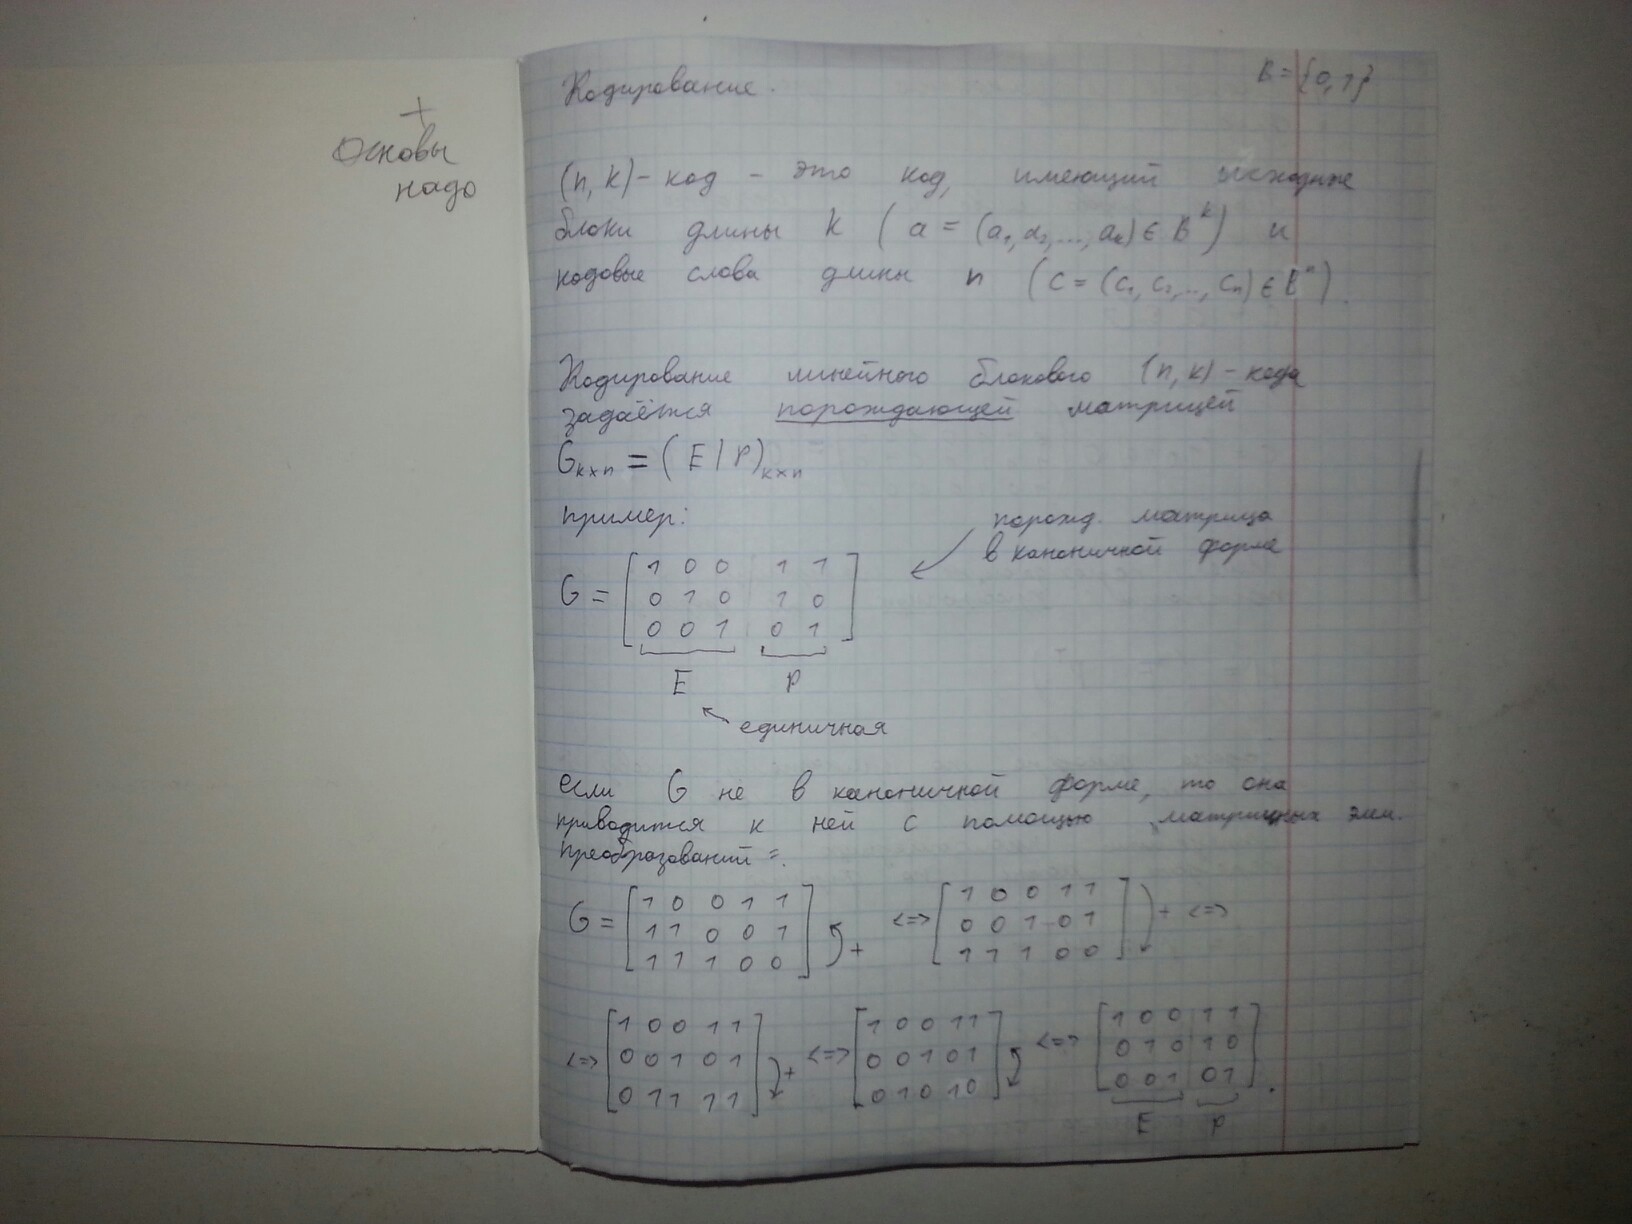 +
Основы
надо
Кодирование.
B = {0, 1}
(n, k) - код - это код, имеющий исходные
блоки длины k ( a = (a₁, a₂, ..., aₖ) ∈ Bᵏ ) и
кодовые слова длины n ( c = (c₁, c₂, .., cₙ) ∈ Bⁿ ).
Кодирование линейного блокового (n, k) - кода
задаётся порождающей матрицей
Gₖₓₙ = ( E | P )ₖₓₙ
пример:
порожд. матрица
в каноничной форме
G = [ 1 0 0 1 1
0 1 0 1 0
0 0 1 0 1 ]
E P
единичная
если G не в каноничной форме, то она
приводится к ней с помощью матричных элем.
преобразований =.
G = [ 1 0 0 1 1
1 1 0 0 1
1 1 1 0 0 ] +
<=> [ 1 0 0 1 1
0 0 1 0 1
1 1 1 0 0 ] + <=>
<=> [ 1 0 0 1 1
0 0 1 0 1
0 1 1 1 1 ] +
<=> [ 1 0 0 1 1
0 0 1 0 1
0 1 0 1 0 ]
<=> [ 1 0 0 1 1
0 1 0 1 0
0 0 1 0 1 ] .
E P